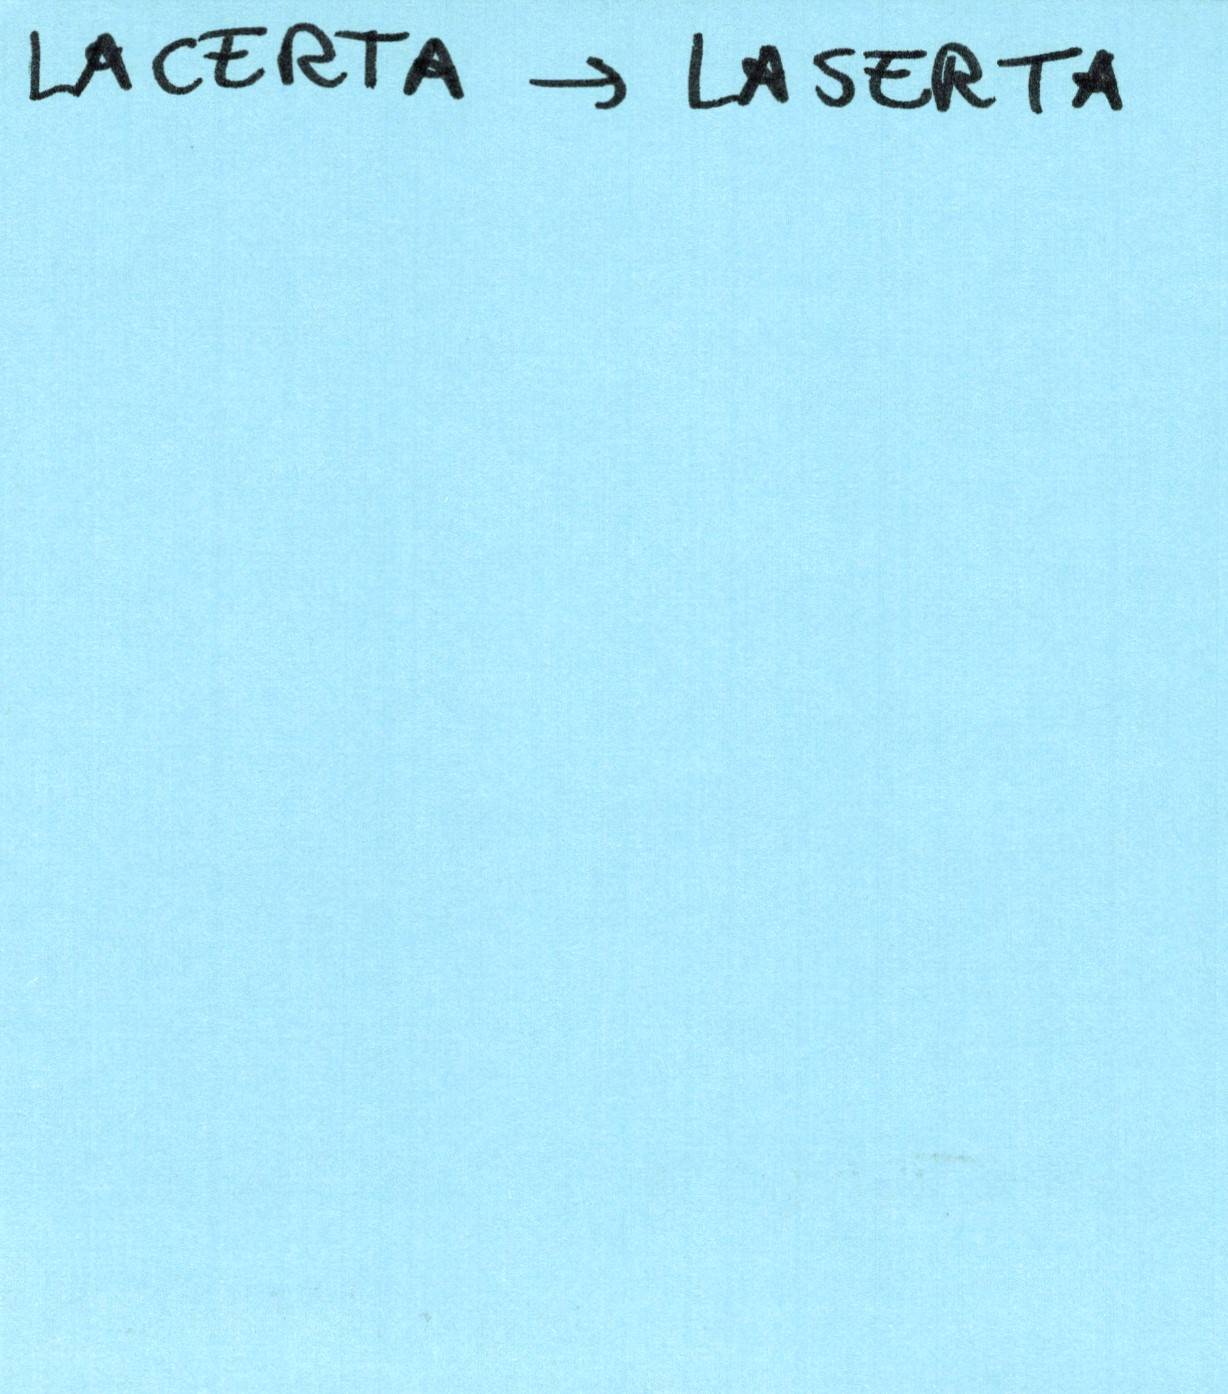 LACERTA → LASERTA